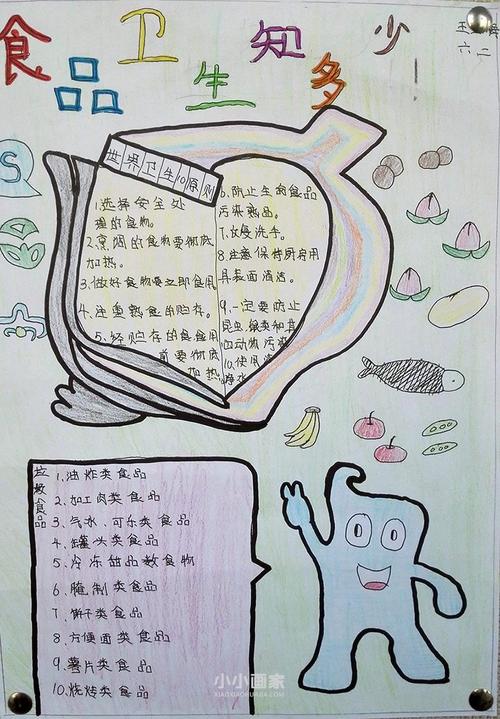 食品卫生知多少
六二
S
世界卫生10原则
1.选择安全处
理的食物。
2.烹调的食物要彻底
加热。
3.做好食物要立即食用
4.注意熟食的贮存。
5.经贮存的食食用
前要彻底
加热
6.防止生的食品
污染熟品。
7.反复洗手。
8.注意保持厨房用
具表面清洁。
9.一定要防止
昆虫、鼠类和其
四动物污染
10.使用
净水
垃圾食品
1.油炸类食品
2.加工肉类食品
3.气水、可乐类食品
4.罐头类食品
5.冷冻甜品类食物
6.腌制类食品
7.饼干类食品
8.方便面类食品
9.薯片类食品
10.烧烤类食品
小小画家
XIAOXIAOHUAJIA.COM